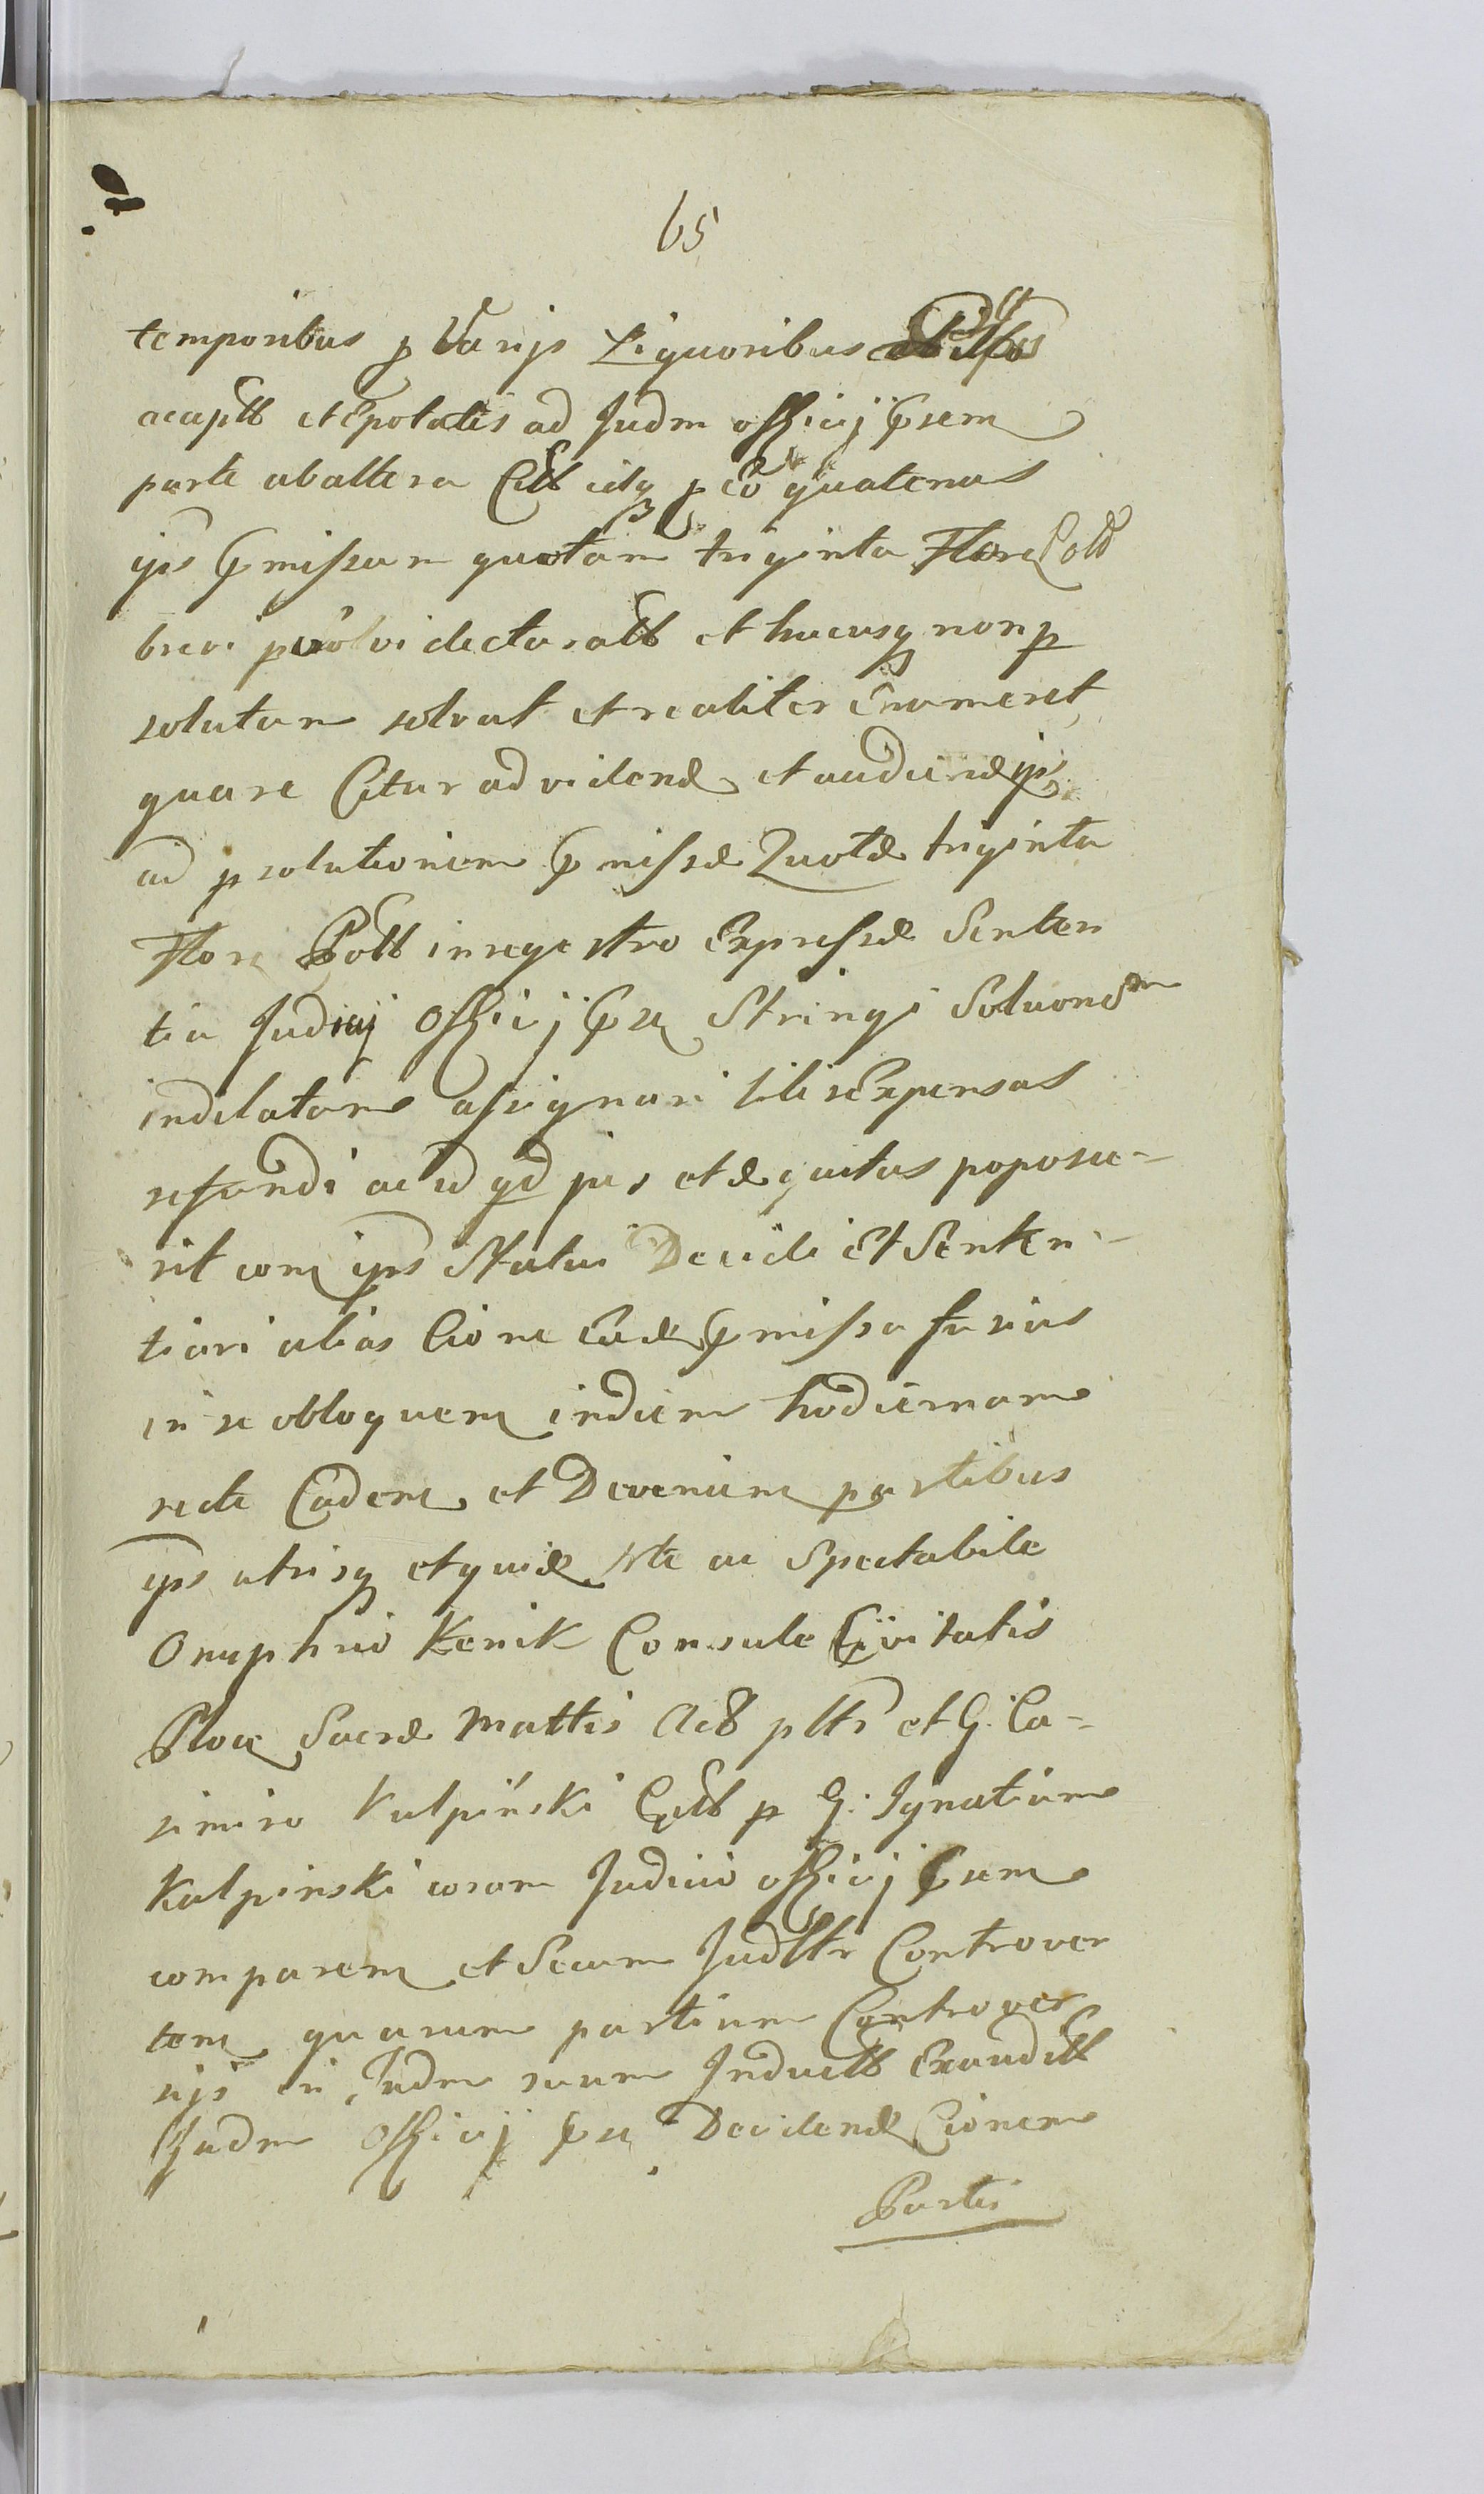 65
temporibus p Varijs Liquoribus
acceptt et Epotatis ad Judm Officij Prsem
parte ab altera Citt idq p eo quatenus
ips Prmissam quotam triginta Floren Poll
brevi persolvi declaratt et hucusq non p
solutam solvat et realiter Enumeret
quare Citatur ad vidend et audiend ips
ad p solutionem Prmissæ Quotæ triginta
Flore Poll in regestro Expressæ Senten
tia Judicij Officij Prsen Stringi Solvondm
indilatam assignari litis Expensas
refundi ac id qd jus et æquitas poposce-
rit com ips Statui Decidi Et Senten-
tiari alias Cione Eade Prmissa fusius
in se obloquen in diem hodiernam
recte Caden et Devenien partibus
ips utrisq et quide Ntte ac Spectabile
Onuphrio Kenik Consule Civitatis
Ploce Sacræ Mattis Act pltt et G. Ca-
simiro Kulpiński Citt p G. Ignatium
Kulpinski coram Judicio Officij Prsem
comparen et Secum Judlttr Controver
ten quarum partium Controver
sijs in Judm suum Inductt Exauditt
Judm Officij Prsen Decidend Cionem
Partis